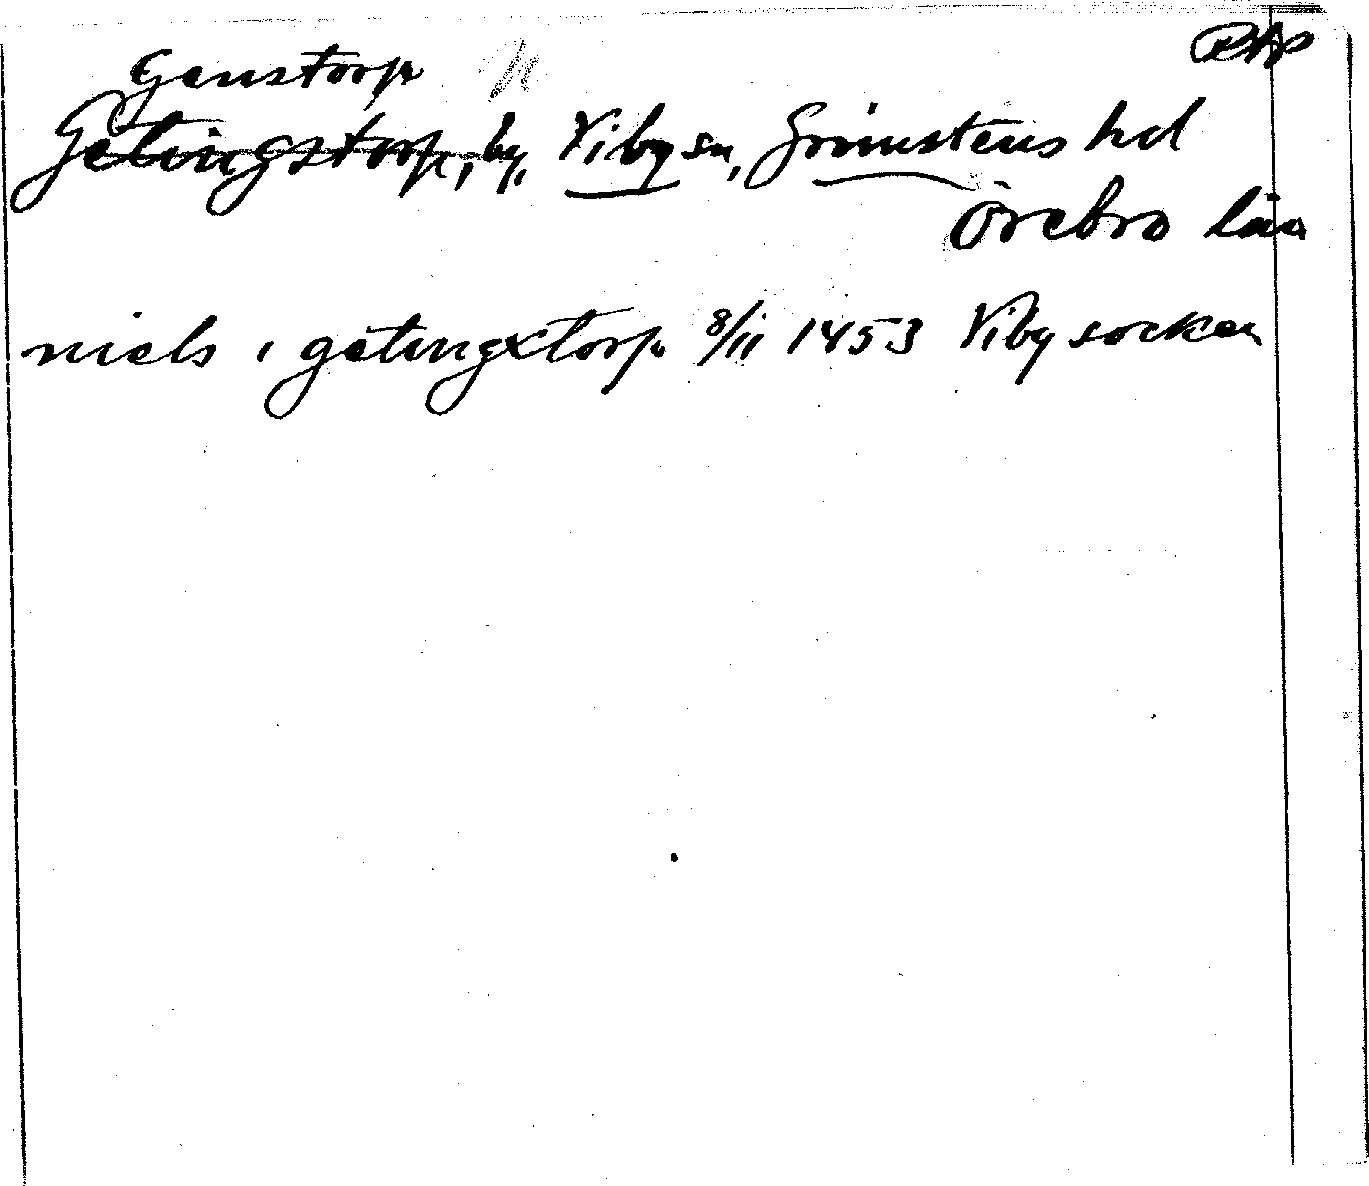 RAP
Genstorp
Getingstorp, by, Viby sn, Grimstens hd
Örebro län
niels i getingxtorp 8/11 1453 Viby socken